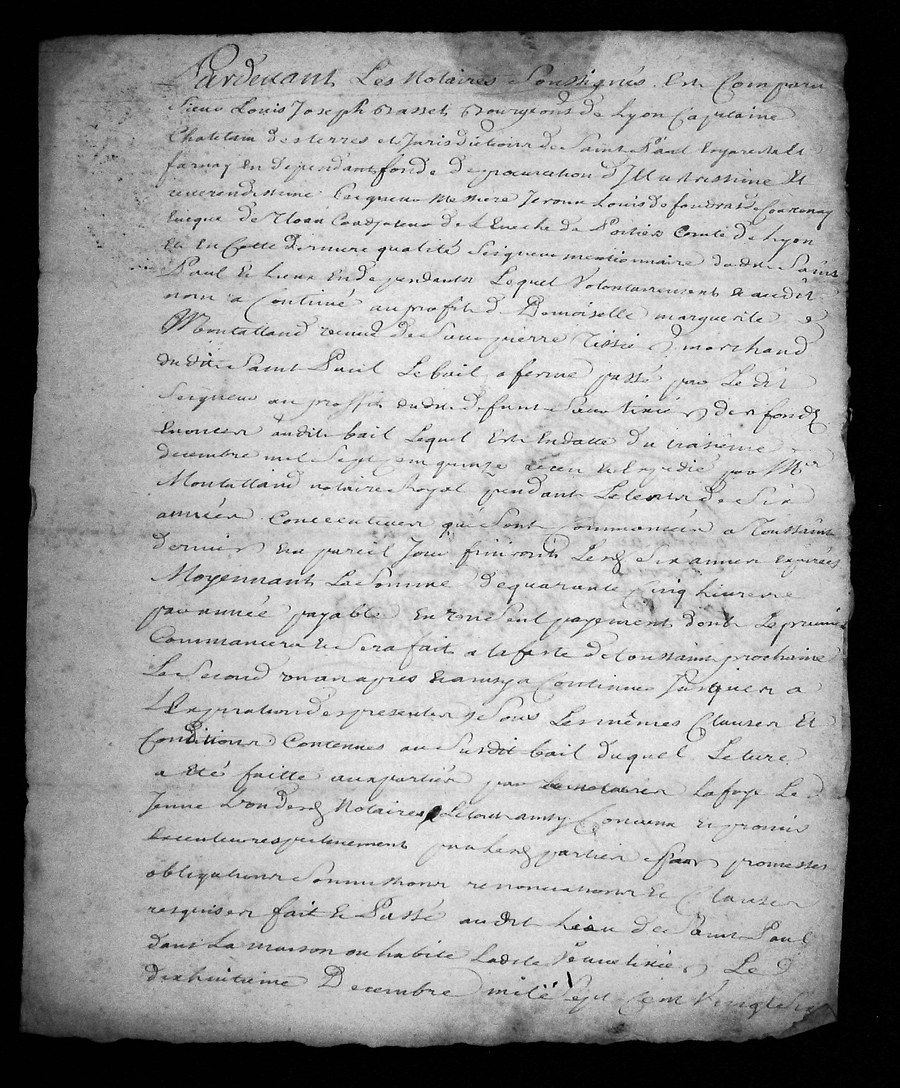 Pardevant Les Notaires Soussignés Est Comparu
Sieur Louis Joseph Basset Bourgeois de Lyon Capitaine
Chatelain des terres et Jurisdictions de Saint Paul Enjarest Et
farnay En dependant fondé de procuration d'Illustrissime Et
reverendissime Seigneur Messire Jerome Louis de foudras de Courcenay
Eveque de Coadjuteur de L Eveché de Poitiers Comte de Lyon
Et En Cette derniere qualité Seigneur mentionnaire dudit Saint
Paul & Lieux En dependants Lequel Volontairement & audit
nom a Continué au profit de Demoiselle marguerite
Montalland veuve de Sieur pierre Tissier marchand
dudit Saint Paul Le bail a ferme passé par Ledit
Seigneur au proffit dudit deffunt Sieur tixier des fonds
Enoncer audit bail Lequel Est En datte du troisieme
decembre mil Sept Cen quinze receu & Expedié par Mr
Montalland notaire Royal pendant Le tems de Six
années Concecutives qui Sont Commancées a Toussaint
dernier Et a pareil Jour finiront Lesd Six années Expirées
Moyennant La Somme de quarante Cinq Livres
par année payable En un Seul payement dont Le premier
Commancera & Sera fait a la feste de Toussaint prochaine
Le Second un an apres & ainsy a Continuer Jusques a
L'Expiration des presentes Sous Les mêmes Clauses Et
Conditions Contenues au Susdit bail duquel Lecture
a été faitte aux parties par Lafoy Le
Jeune L'un desd Notaires Le tout ainsy Convenu & promis
Executer respectivement par Lesd parties par promesses
obligations Soumissions renonciations & Clauses
requises fait & Passé audit Lieu de Saint Paul
dans La maison ou habite Ladite Veuve tixier Le
dixhuitieme Decembre mil Sept Cent Vingt